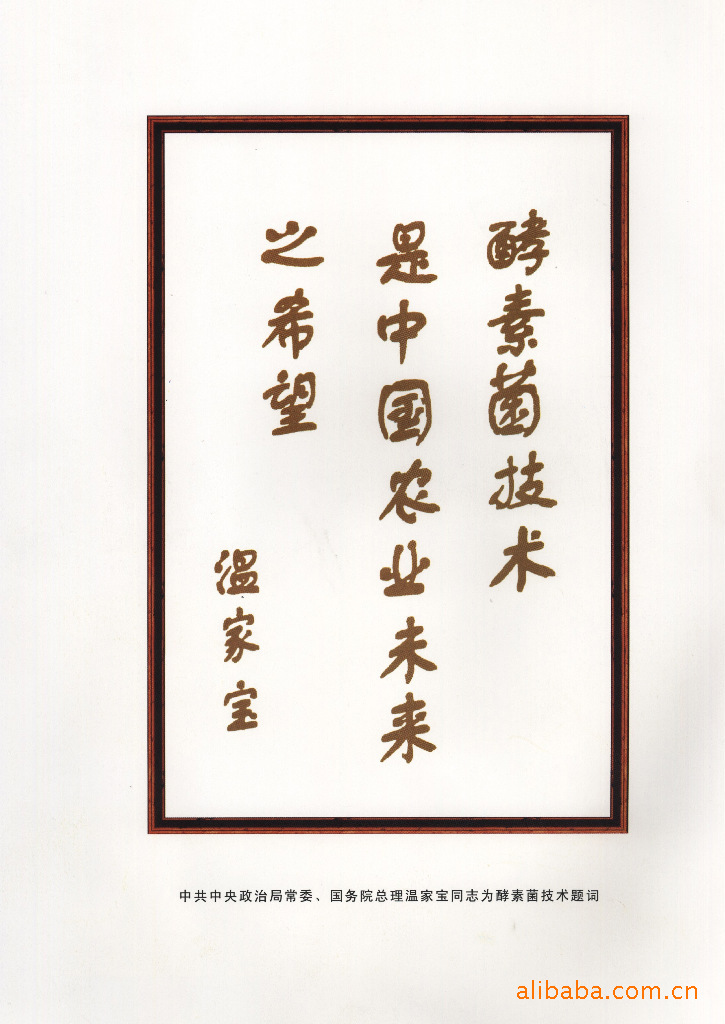 酵素菌技术
是中国农业未来
之希望
温家宝
中共中央政治局常委、国务院总理温家宝同志为酵素菌技术题词
alibaba.com.cn